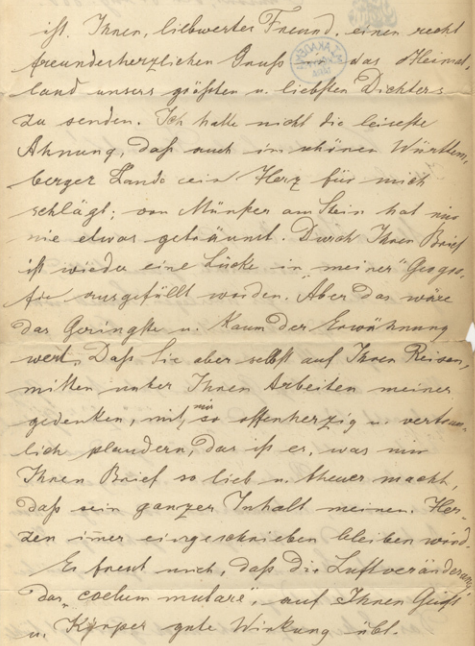 ist. Ihnen, liebwerter Freund, einen recht
freundesherzlichen Gruss in das Heimat-
land unsers größten u. liebsten Dichters
zu senden. Ich hatte nicht die leiseste
Ahnung, daß auch im schönen Württem-
berger Lande ein Herz für mich
schlägt; von Münster am Stein hat mir
nie etwas geträumt. Durch Ihren Brief
ist wieder eine Lücke in meiner "Geogra-
fie ausgefüllt worden. "Aber das wäre
das Geringste u. kaum der Erwähnung
wert. Daß Sie aber selbst auf Ihren Reisen,
mitten unter Ihren Arbeiten meiner
gedenken, mit mir so offenherzig u. vertrau-
lich plaudern, das ist es, was mir
Ihren Brief so lieb u. theuer macht,
daß sein ganzer Inhalt meinem Her-
zen immer eingeschrieben bleiben wird.
Es freut mich, daß die Luftveränderung,
das "coelum mutare", auf Ihren Geist
u. Körper gute Wirkung übt.